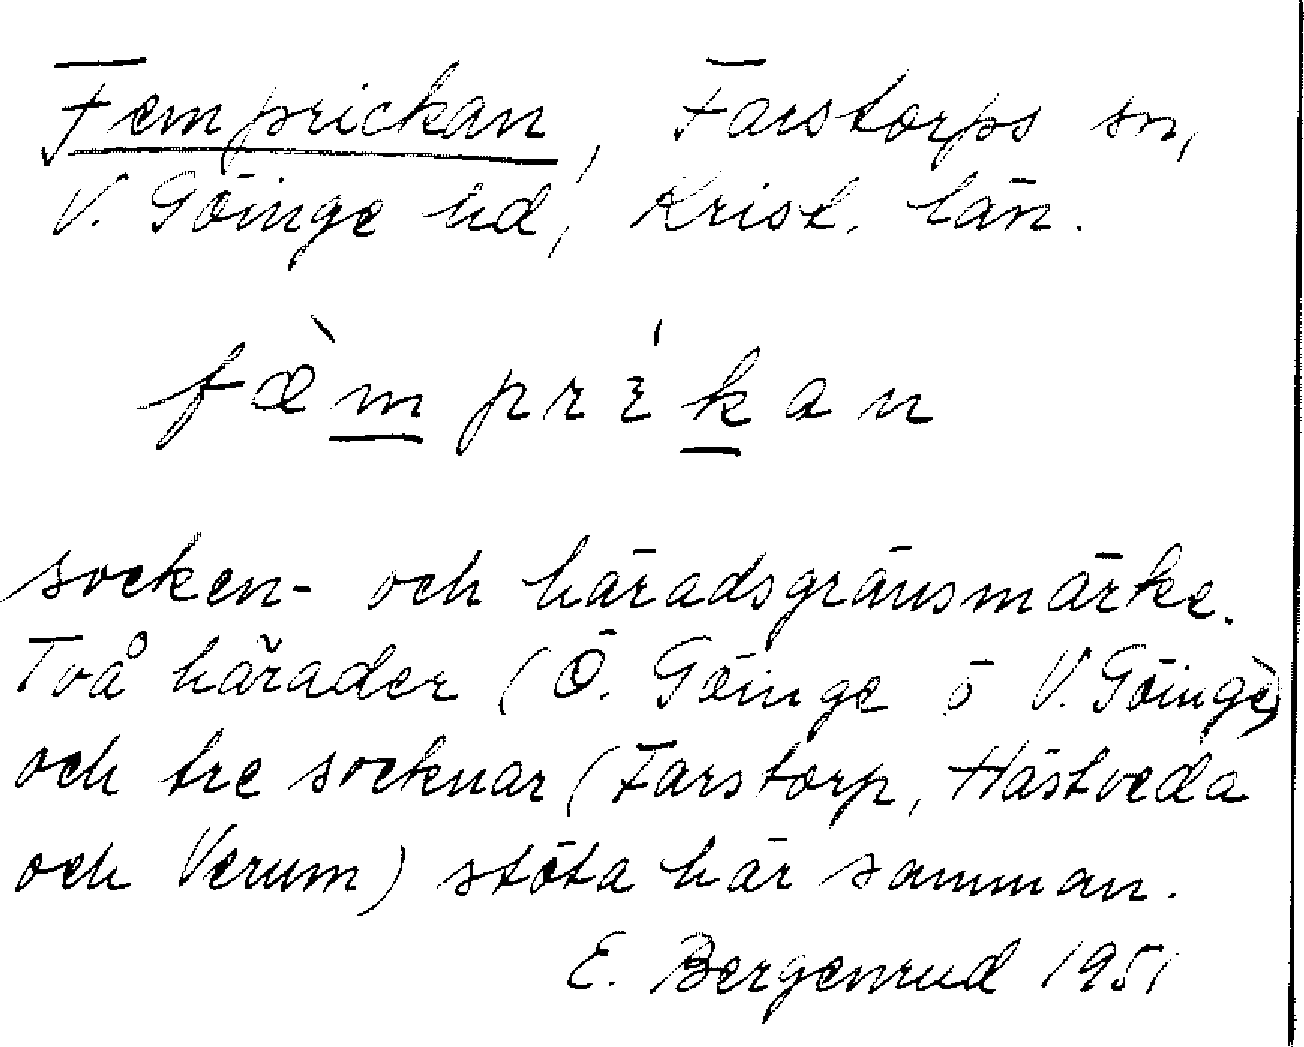 Femprickan, Farstorps sn,
V. Göinge hd, Krist. län.
fæ̀mprékan
socken- och häradsgränsmärke.
Två härader (Ö. Göinge ö V. Göinge)
och tre socknar (Farstorp, Hästveda
och Verum) stöta här samman.
E. Bergenrud 1951